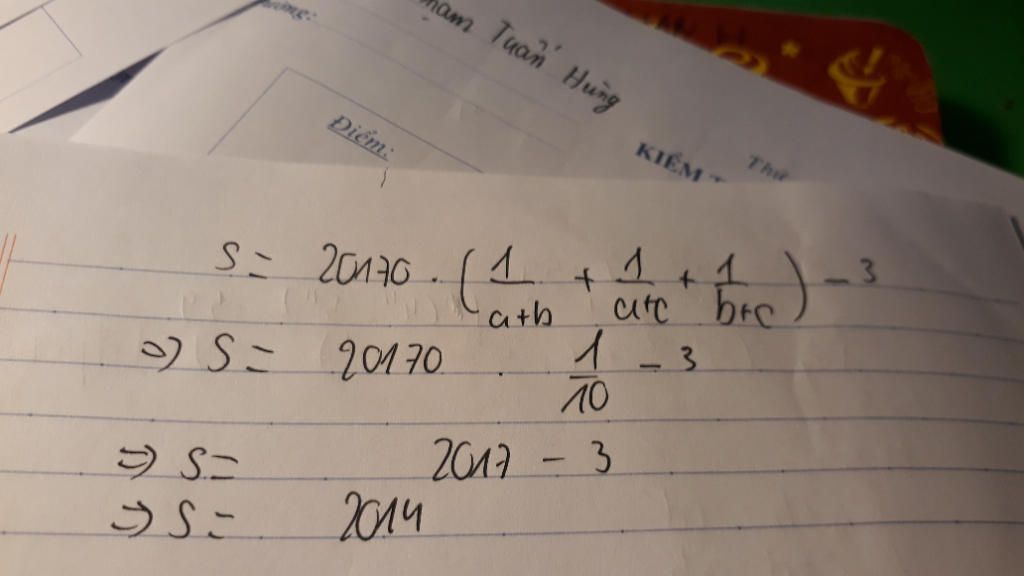 Tuấn Hùng
Điểm:
KIỂM
S = 20170 . (1/a+b + 1/a+c + 1/b+c) - 3
=> S = 20170 . 1/10 - 3
=> S = 2017 - 3
=> S = 2014